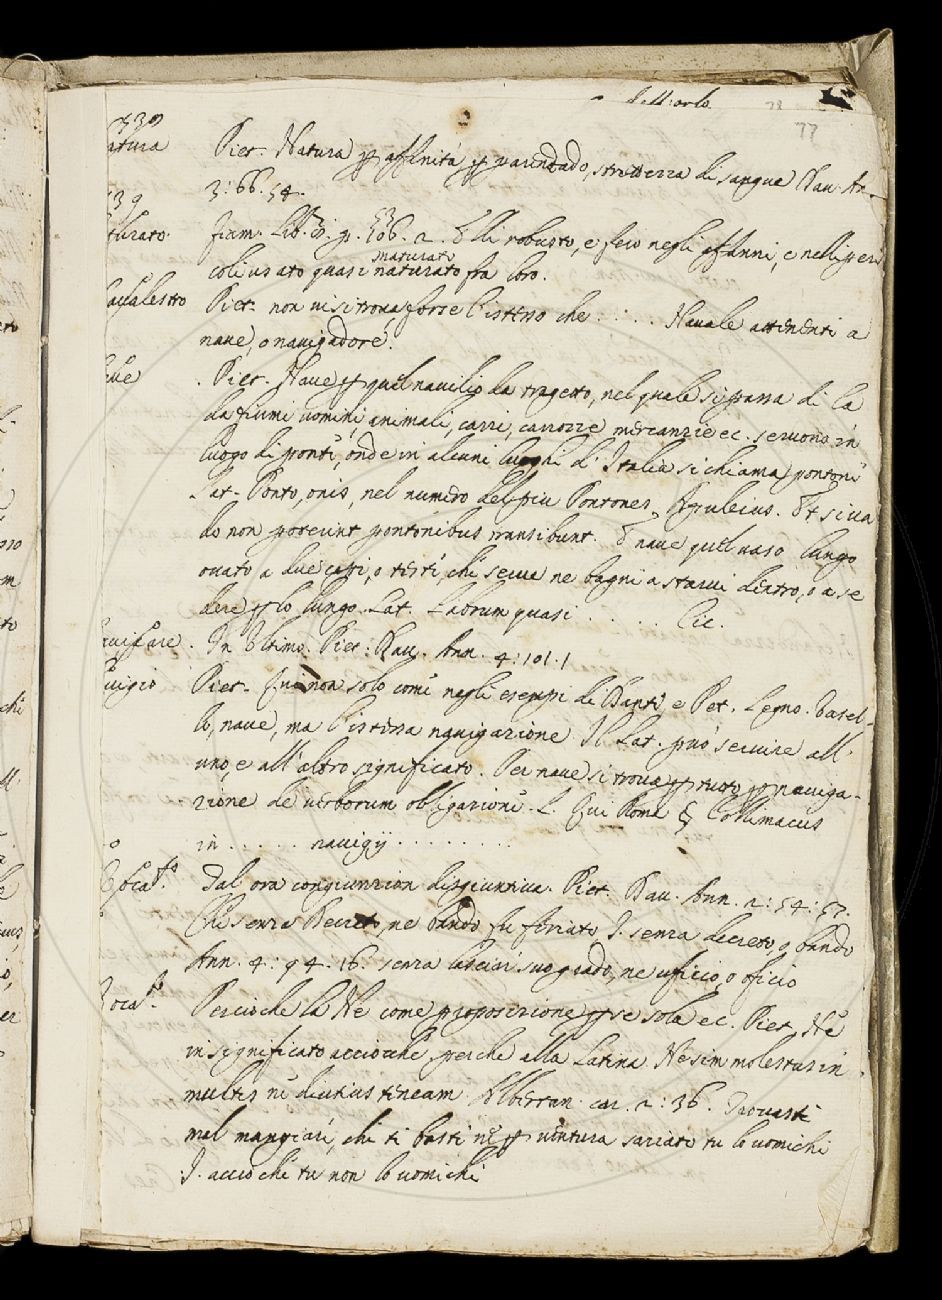 78
77
539
atura Pier. Natura p affinità p parentado, strettezza di sangue Dav. An.
3: 66. 54.
39
turato. fiam. lib. p. 106. 2. Elli robusto, e fero negli affanni, e nelli peri
53
maturato
coli usato quasi naturato fra loro.
Pier. non vi si trova forse l'istesso che . . . . Navale attenenti a
nave, o navigadore.
ave . Pier. Nave p quel navilio da tragetto, nel quale si passa di là
da fiumi uomini, animali, carri, carrozze mercanzie ec. servono in
luogo di ponti, onde in alcuni luoghi d'Italia si chiama pontoni
Lat. Ponto, onis, nel numero del piu Pontones. Apuleius. Et si va
do non poterunt pontonibus transibunt. E nave quel vaso lungo
ovato a due capi, o testi, che serve ne bagni a starvi dentro, o a se
dere p lo lungo. Lat. Labrum quasi . . . . . Cic.
In Ultimo. Pier: Dav. Ann. 4: 101. 1
vigio Pier. Qui non solo come negli esempi di Dante e Pet. Legno. Vasel-
lo, nave, ma l'istessa navigazione. Il Lat. può servire all'
uno, e all'altro significato. Per nave si trova p tutto p naviga-
zione de verborum obligazione. L. Qui Roma § Collimacus
in . . . . . navigij . . . . . . . . .
o
Dal ora congiunzion disgiuntiva. Pier. Dav. Ann. 2: 54: 57.
Che senza Decreto, ne bando fu feriato I. senza decreto, o bando
Ann. 4: 94. 16. senza lasciar suo grado, ne uficio, o oficio
Percioche la Ne come proposizione p se sola ec. Pier. Ne
in significato acciochè, perche alla Latina Ne sim molestus in
multis ne diutius teneam. car. 2: 36. Trovasti
mal mangiari, chi ti basti ne p ventura saziato tu lo vomichi
I. accio chè tu non lo vomichi